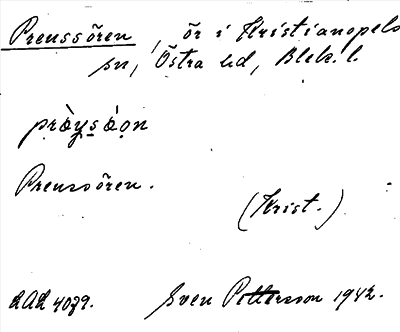 Preussören, ör i Kristianopels
sn, Östra hd, Blek. l.
Preussören.
(Krist.)
LAL 4079.
Sven Pettersson 1942.